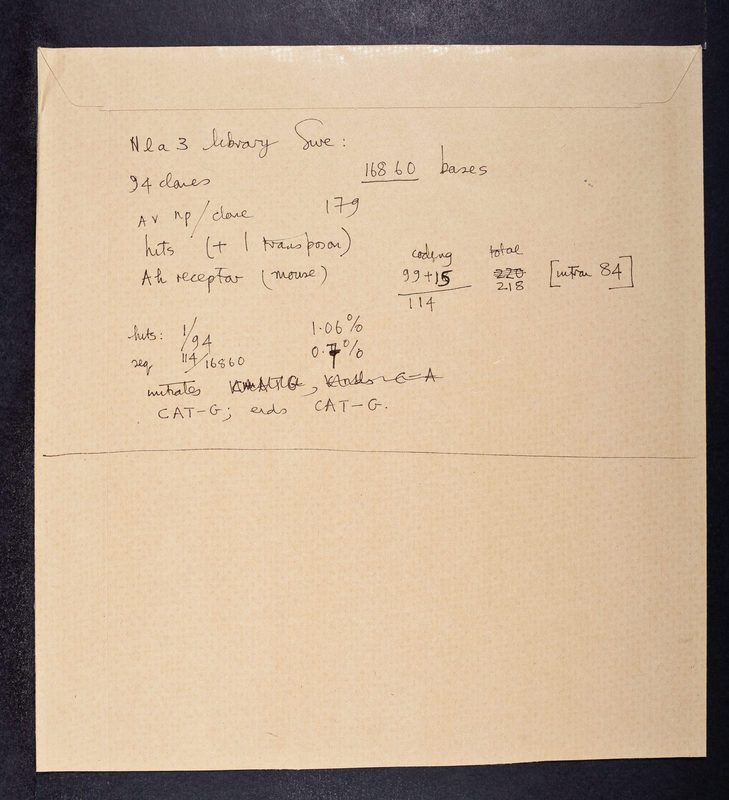 Nla 3 library Sue:
94 clones 16860 bases
Av np/clone 179
hits (+ 1 transposon)
coding total
Ah receptor (mouse) 99+15 220 [intron 84]
114 218
hits: 1/94 1.06%
seq 114/16860 0.7%
initiates
CAT-G; ends CAT-G.